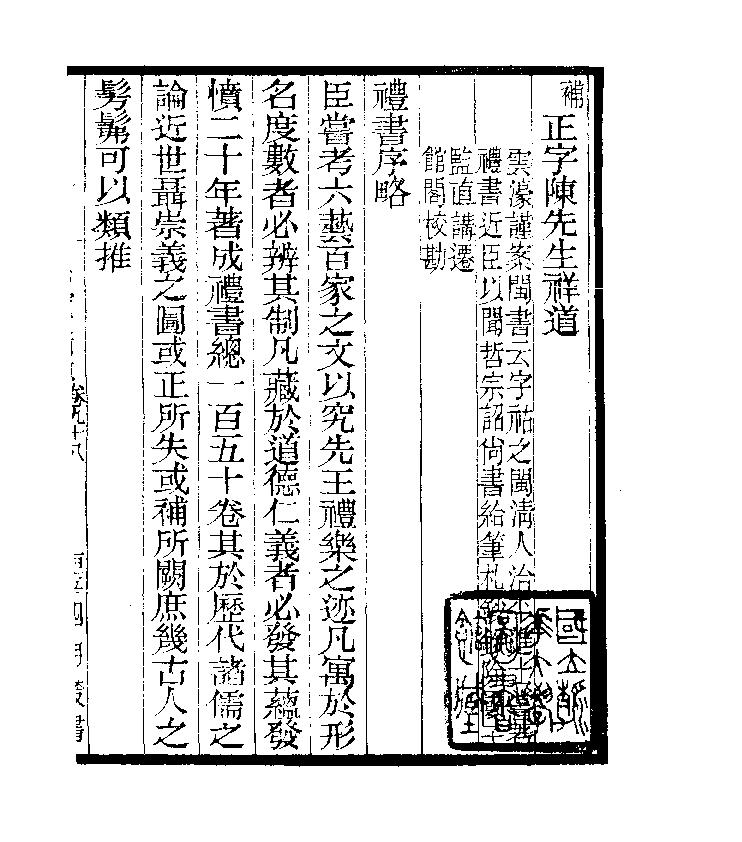 補正字陳先生祥道
雲濠謹案閩書云字祐之閩淸人治
禮書近臣以聞哲宗詔尙書給筆札
監直講遷
館閣校勘
禮書序略
臣嘗考六藝百家之文以究先王禮樂之迹凡寓於形
名度數者必辨其制凡藏於道德仁義者必發其蘊發
憤二十年著成禮書總一百五十卷其於歷代諸儒之
論近世聶崇義之圖或正所失或補所闕庶幾古人之
髣髴可以類推
卷九十八
四明叢書